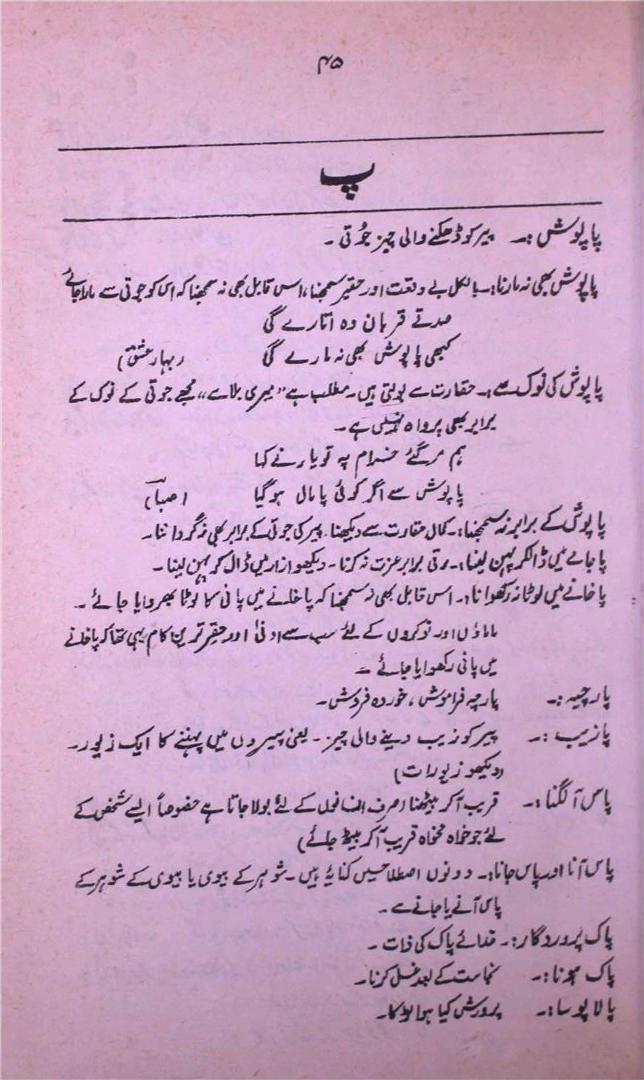 ۴۵
پ
پاپوش :۔ پیر کو ڈھکنے والی چیز جُوتی ۔
پاپوش بھی نہ مارنا :۔ بالکل بے وقعت اور حقیر سمجھنا، اس قابل بھی نہ سمجھنا کہ اس کو جوتی سے مارا جائے
صدقے قربان وہ اتارے گی
کبھی پاپوش بھی نہ مارے گی (بہارِ عشق)
پاپوش کی نوک سے :۔ حقارت سے بولتی ہیں ۔ مطلب ہے "میری بلا سے" مجھے جوتی کے نوک کے
برابر بھی پرواہ نہیں ہے ۔
ہم مر گئے خرام پہ تو یار نے کہا
پاپوش سے اگر کوئی پامال ہو گیا (صبا)
پاپوش کے برابر نہ سمجھنا :۔ کمال حقارت سے دیکھنا ۔ پیر کی جوتی کے برابر بھی نہ گرداننا ۔
پاجامے میں ڈالکر پہن لینا :۔ رتی برابر عزت نہ کرنا ۔ دیکھو ازار میں ڈال کر پہن لینا ۔
پاخانے میں لوٹا نہ رکھوانا :۔ اس قابل بھی نہ سمجھنا کہ پاخانے میں پانی کا لوٹا بھروایا جائے ۔
ماماؤں اور نوکروں کے لئے سب سے ادنیٰ اور حقیر ترین کام یہی تھا کہ پاخانے
میں پانی رکھوایا جائے ۔
پارچیہ :۔ پارچہ فراموش ، خوردہ فروش ۔
پازیب :۔ پیر کو زیب دینے والی چیز ۔ یعنی پیروں میں پہننے کا ایک زیور ۔
(دیکھو زیورات)
پاس آ لگنا :۔ قریب آ کر بیٹھنا (صرف انسانوں کے لئے بولا جاتا ہے خصوصاً ایسے شخص کے
لئے جو خواہ مخواہ قریب آ کر بیٹھ جائے)
پاس آنا اور پاس جانا :۔ دونوں اصطلاحیں کنایۃً ہیں ۔ شوہر کے بیوی یا بیوی کے شوہر کے
پاس آنے یا جانے سے ۔
پاک پروردگار :۔ خدائے پاک کی ذات ۔
پاک ہونا :۔ نجاست کے بعد غسل کرنا ۔
پالا پوسا :۔ پرورش کیا ہوا لڑکا ۔